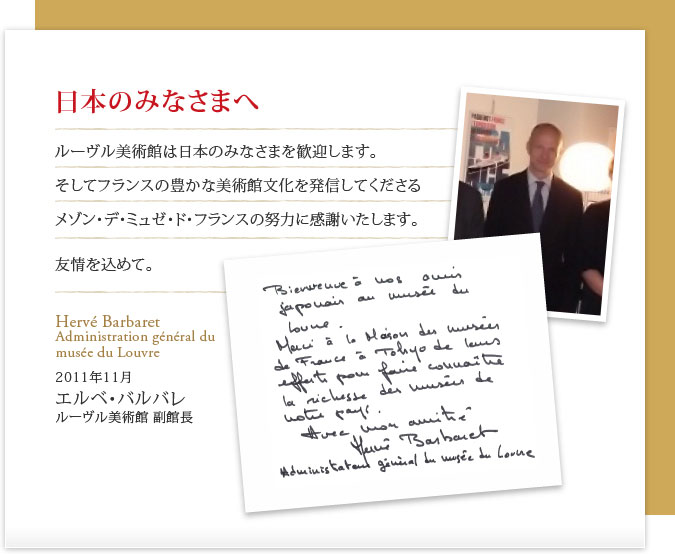 日本のみなさまへ
ルーヴル美術館は日本のみなさまを歓迎します。
そしてフランスの豊かな美術館文化を発信してくださる
メゾン・デ・ミュゼ・ド・フランスの努力に感謝いたします。
友情を込めて。
Hervé Barbaret
Administration général du
musée du Louvre
2011年11月
エルベ・バルバレ
ルーヴル美術館 副館長
Bienvenue à nos amis
japonais au musée du
Louvre.
Merci à la Maison des musées
de France à Tokyo de leurs
efforts pour faire connaître
la richesse des musées de
notre pays.
Avec mon amitié
Hervé Barbaret
Administrateur général du musée du Louvre